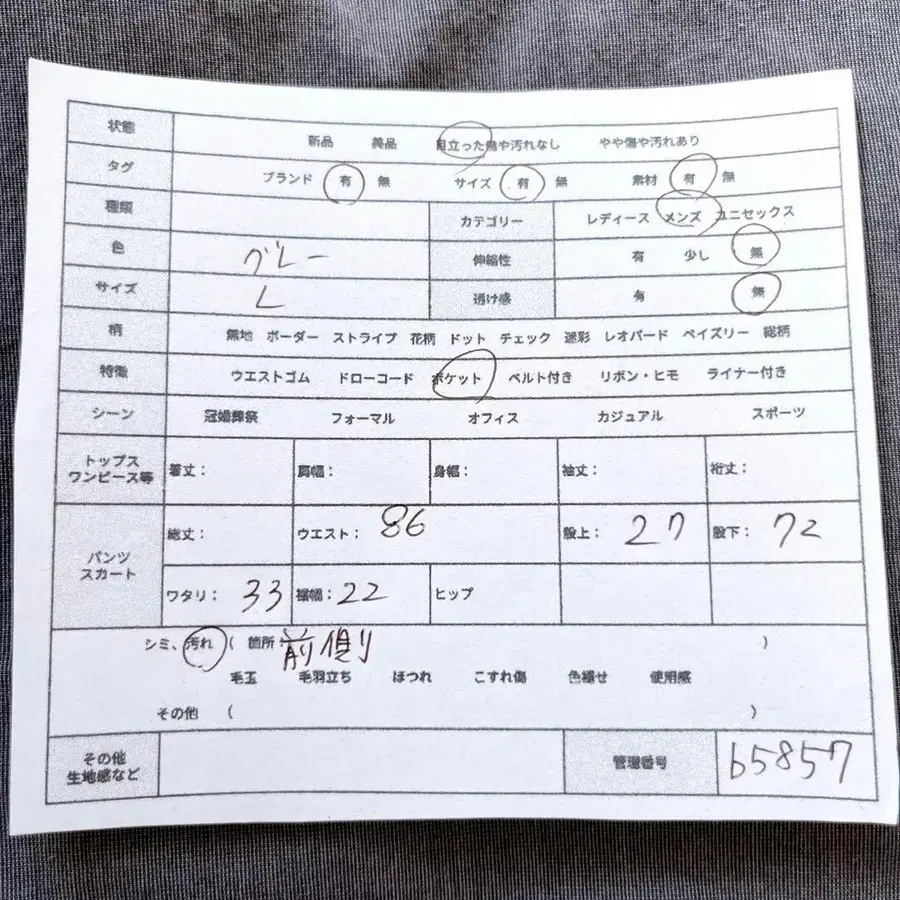 状態 新品 美品 目立った傷や汚れなし やや傷や汚れあり
タグ ブランド 有 無 サイズ 有 無 素材 有 無
種類 カテゴリー レディース メンズ ユニセックス
色 グレー 伸縮性 有 少し 無
サイズ L 透け感 有 無
柄 無地 ボーダー ストライプ 花柄 ドット チェック 迷彩 レオパード ペイズリー 総柄
特徴 ウエストゴム ドローコード ポケット ベルト付き リボン・ヒモ ライナー付き
シーン 冠婚葬祭 フォーマル オフィス カジュアル スポーツ
トップス
ワンピース等 着丈： 肩幅： 身幅： 袖丈： 裄丈：
総丈： ウエスト： 86 股上： 27 股下： 72
パンツ
スカート
ワタリ： 33 裾幅： 22 ヒップ
シミ、汚れ ( 箇所： 前側 )
毛玉 毛羽立ち ほつれ こすれ傷 色褪せ 使用感
その他 ( )
その他
生地感など 管理番号 b5857